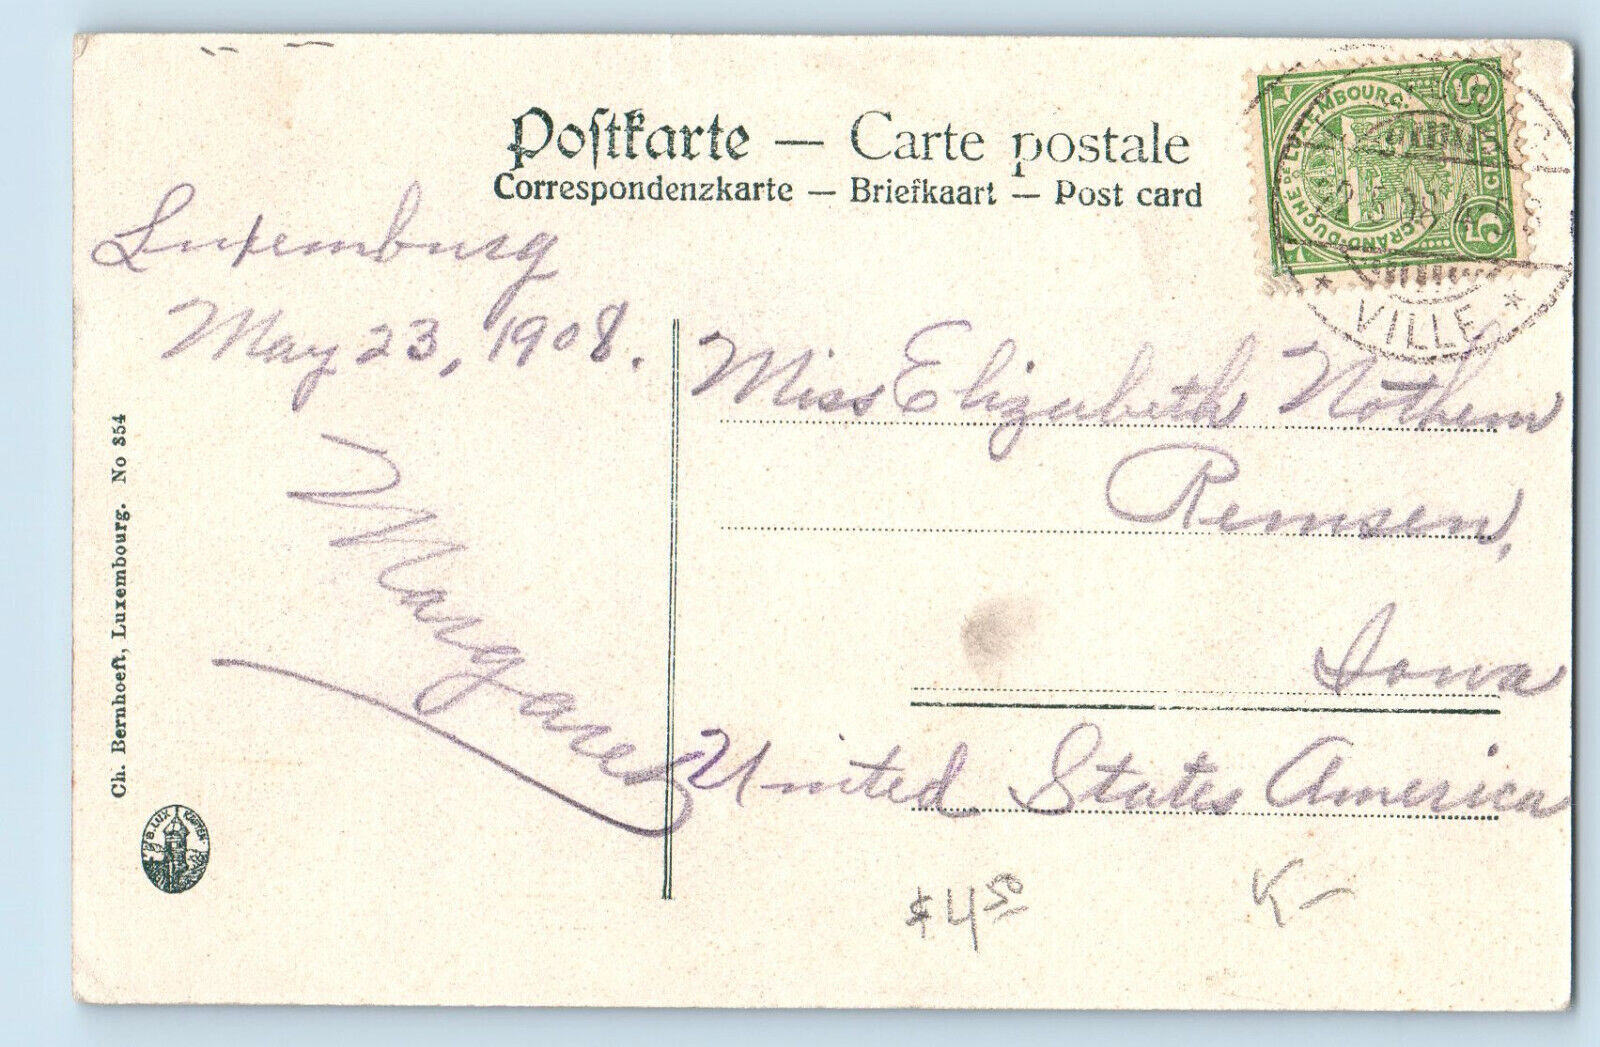 Postkarte — Carte postale
Correspondenzkarte — Briefkaart — Post card
GRAND-DUCHÉ DE LUXEMBOURG.
5 CENTIMES 5
VILLE
Luxemburg
May 23, 1908.
Margaret
Miss Elizabeth Nothem
Remsen,
Iowa
United States America
Ch. Bernhoeft, Luxembourg. No 354
$4 50
K-